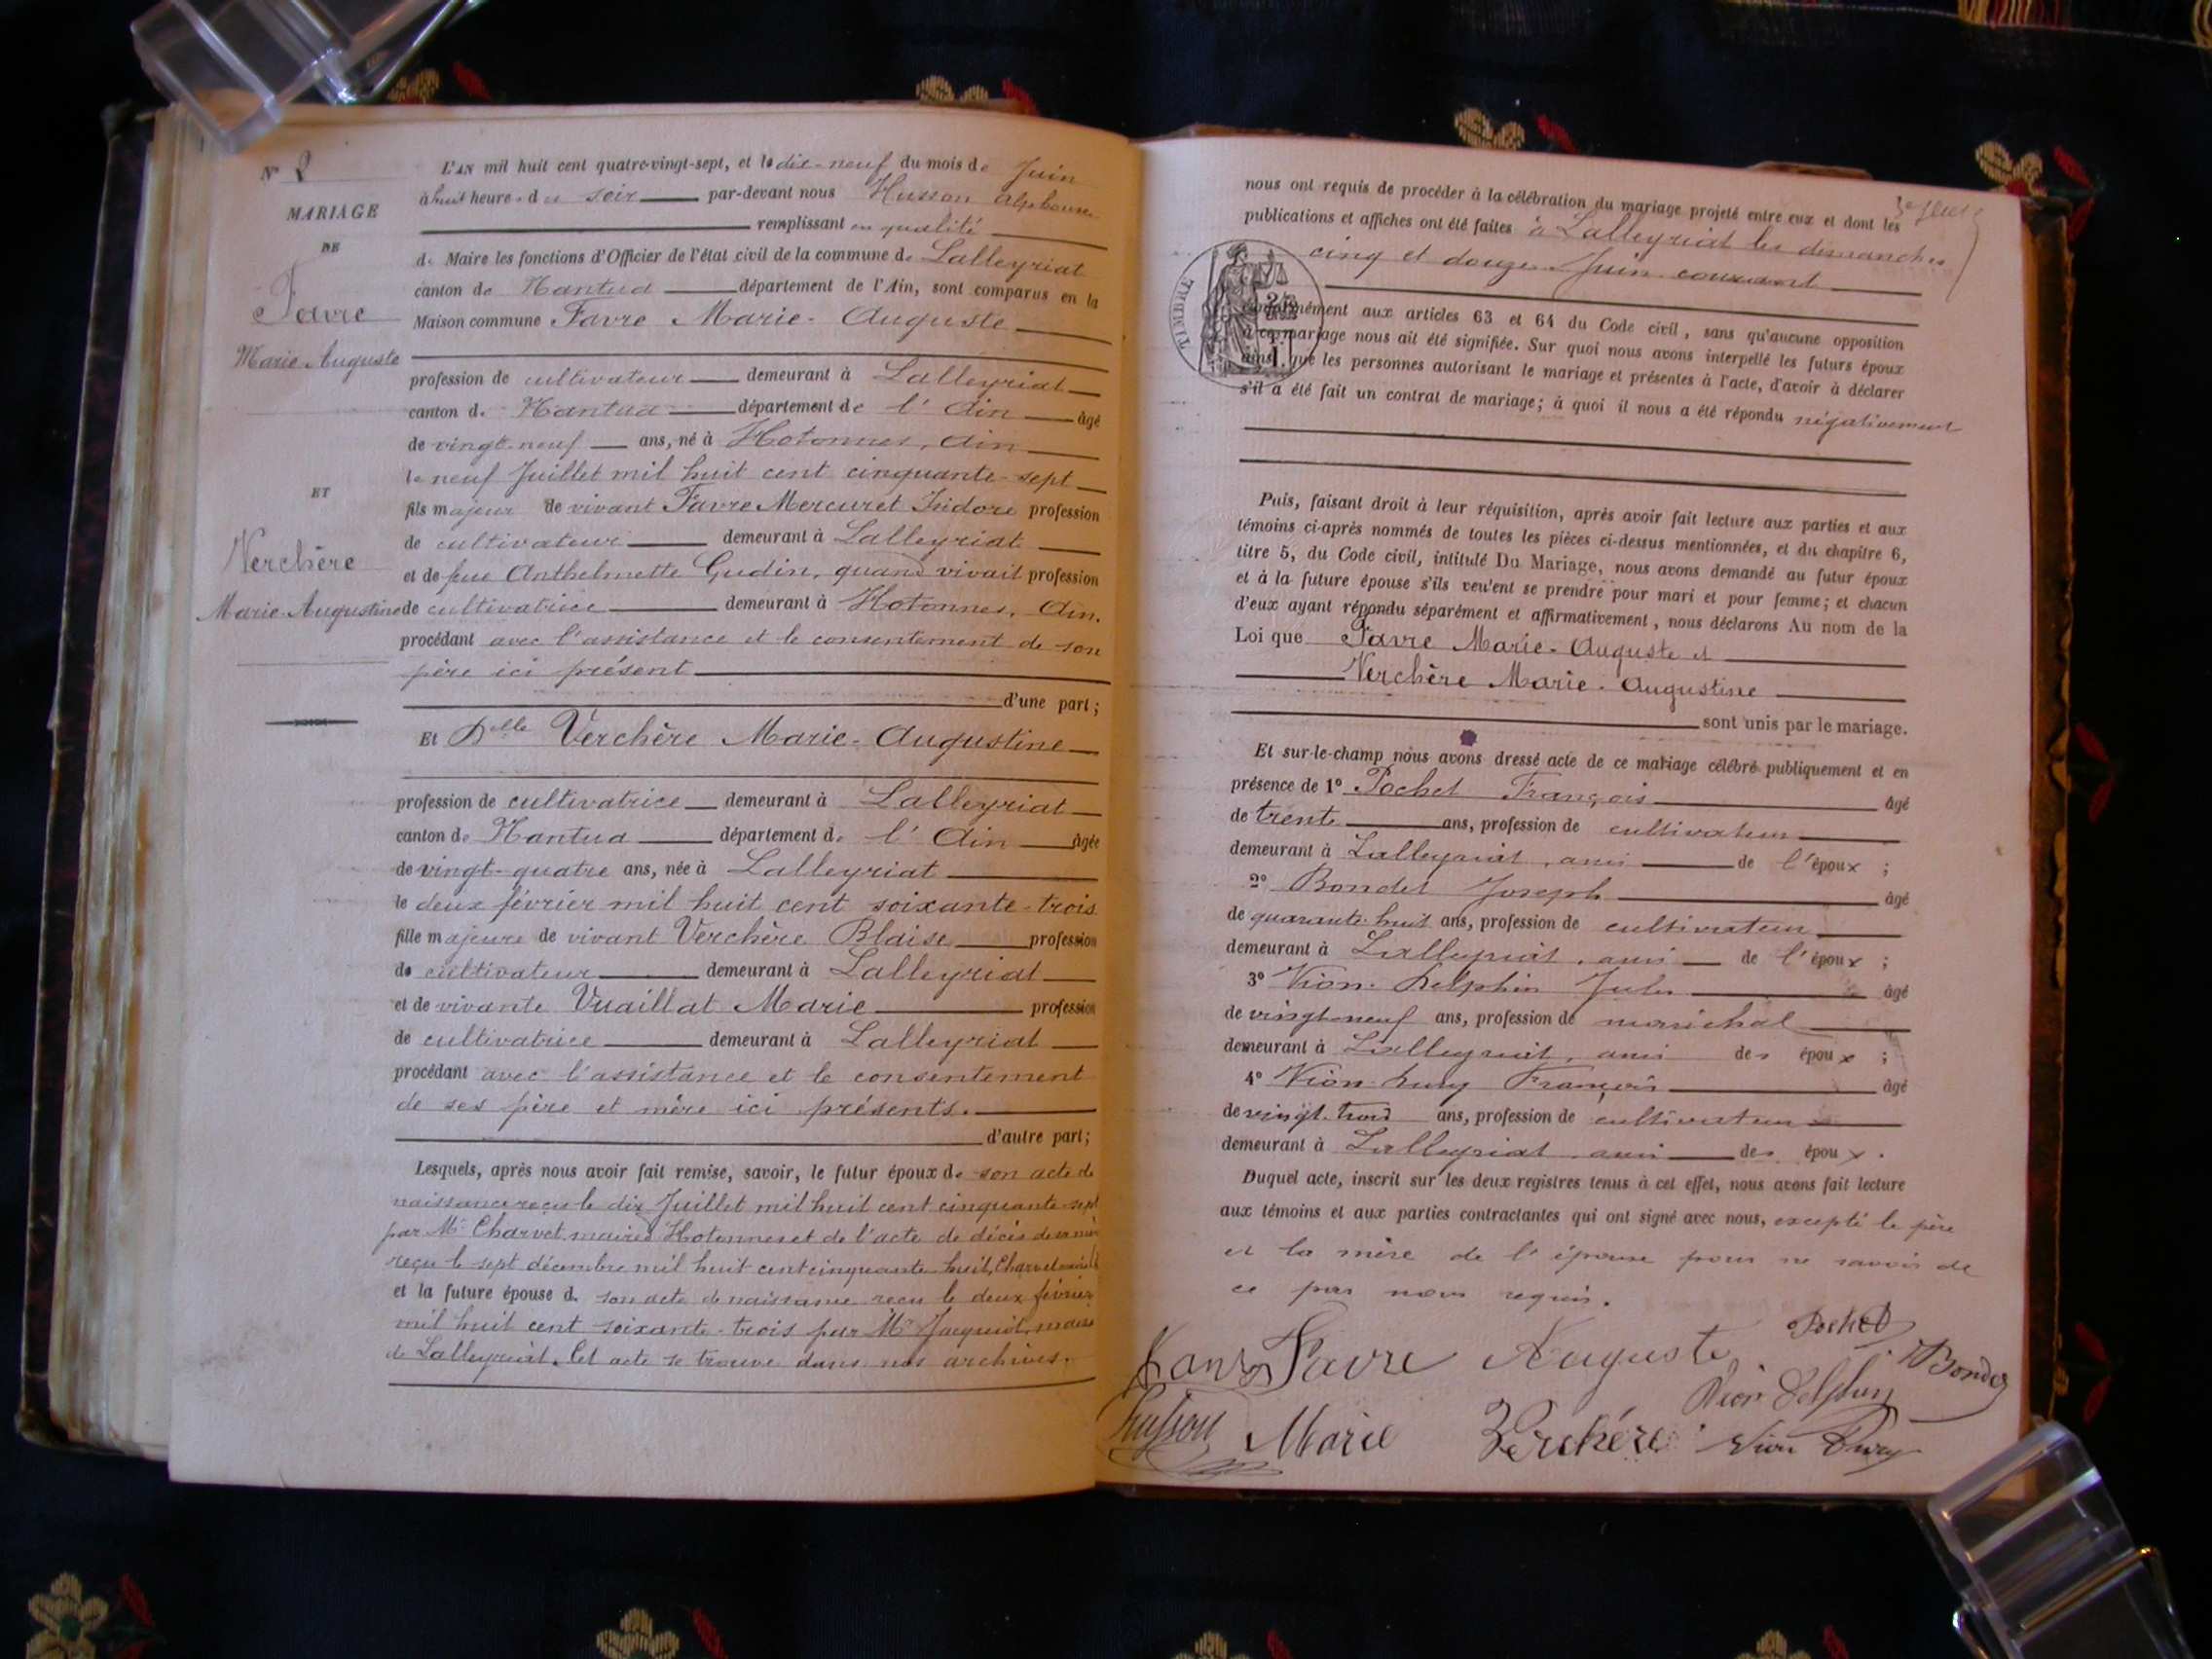 N° 2
MARIAGE
DE
Favre
Marie Auguste
ET
Verchère
Marie-Augustine
L'AN mil huit cent quatre-vingt-sept, et le dix-neuf du mois de Juin
à huit heures du soir par-devant nous Husson Alphonse
remplissant en qualité
de Maire les fonctions d'Officier de l'état civil de la commune de Lalleyriat
canton de Nantua département de l'Ain, sont comparus en la
Maison commune Favre Marie-Auguste
profession de cultivateur demeurant à Lalleyriat
canton de Nantua département de l'Ain âgé
de vingt-neuf ans, né à Hotonnes, Ain
le neuf Juillet mil huit cent cinquante-sept
fils majeur de vivant Favre Mercuret Isidore profession
de cultivateur demeurant à Lalleyriat
et de feue Anthelmette Gudin, quand vivait profession
de cultivatrice demeurant à Hotonnes, Ain.
procédant avec l'assistance et le consentement de son
père ici présent
d'une part;
Et Delle Verchère Marie-Augustine
profession de cultivatrice demeurant à Lalleyriat
canton de Nantua département de l'Ain âgée
de vingt-quatre ans, née à Lalleyriat
le deux février mil huit cent soixante-trois
fille majeure de vivant Verchère Blaise profession
de cultivateur demeurant à Lalleyriat
et de vivante Vuaillat Marie profession
de cultivatrice demeurant à Lalleyriat
procédant avec l'assistance et le consentement
de ses père et mère ici présents.
d'autre part;
Lesquels, après nous avoir fait remise, savoir, le futur époux de son acte de
naissance reçu le dix Juillet mil huit cent cinquante-sept
par Mr Charvet, maire d'Hotonnes et de l'acte de décès de sa mère
reçu le sept décembre mil huit cent cinquante-huit, Charvet
et la future épouse de son acte de naissance reçu le deux février
mil huit cent soixante-trois par Mr Jacquiot, maire
de Lalleyriat. Cet acte se trouve dans nos archives.
nous ont requis de procéder à la célébration du mariage projeté entre eux et dont les
publications et affiches ont été faites à Lalleyriat les dimanches
cinq et douze Juin courant
TIMBRE
conformément aux articles 63 et 64 du Code civil, sans qu'aucune opposition
à ce mariage nous ait été signifiée. Sur quoi nous avons interpellé les futurs époux
ainsi que les personnes autorisant le mariage et présentes à l'acte, d'avoir à déclarer
s'il a été fait un contrat de mariage; à quoi il nous a été répondu négativement
Puis, faisant droit à leur réquisition, après avoir fait lecture aux parties et aux
témoins ci-après nommés de toutes les pièces ci-dessus mentionnées, et du chapitre 6,
titre 5, du Code civil, intitulé Du Mariage, nous avons demandé au futur époux
et à la future épouse s'ils veulent se prendre pour mari et pour femme; et chacun
d'eux ayant répondu séparément et affirmativement, nous déclarons Au nom de la
Loi que Favre Marie-Auguste et
Verchère Marie-Augustine
sont unis par le mariage.
Et sur-le-champ nous avons dressé acte de ce mariage célébré publiquement et en
présence de 1° Pochet François âgé
de trente ans, profession de cultivateur
demeurant à Lalleyriat, ami de l'époux ;
2° Bondet Joseph âgé
de quarante-huit ans, profession de cultivateur
demeurant à Lalleyriat, ami de l'époux ;
3° Vion-Delphin Jules âgé
de vingt-neuf ans, profession de maréchal
demeurant à Lalleyriat, ami des époux ;
4° Vion-Dury François âgé
de vingt-trois ans, profession de cultivateur
demeurant à Lalleyriat ami des époux.
Duquel acte, inscrit sur les deux registres tenus à cet effet, nous avons fait lecture
aux témoins et aux parties contractantes qui ont signé avec nous, excepté le père
et la mère de l'épouse pour ne savoir de
ce par nous requis.
Favre Auguste Pochet
Bondet
Vion Delphin
Husson Marie Verchère Vion Dury